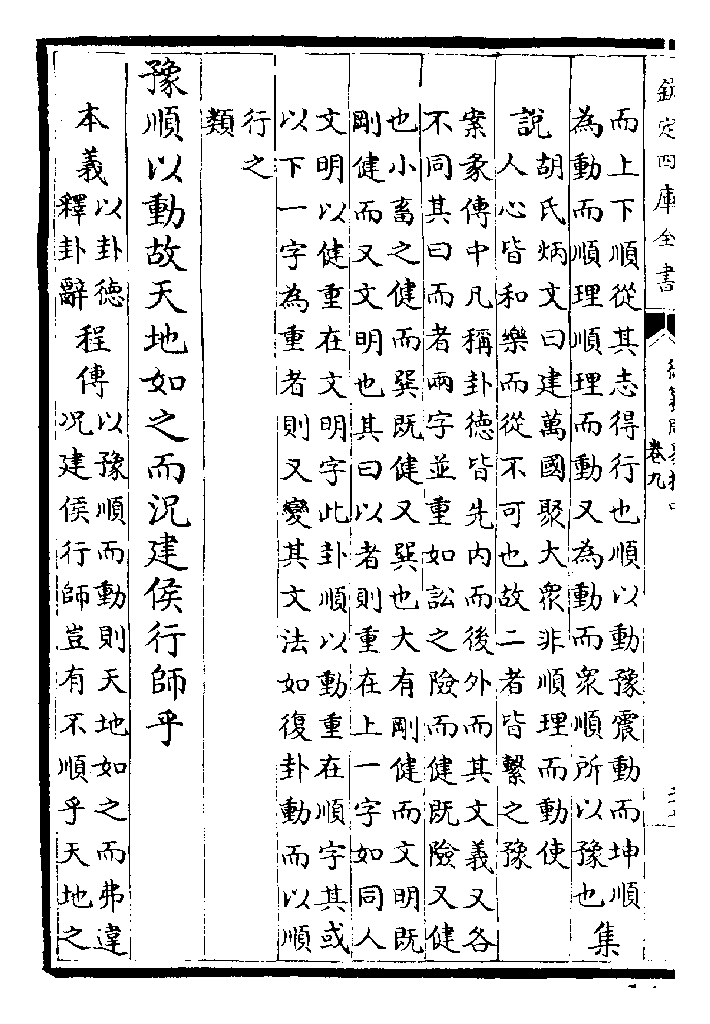 欽定四庫全書
卷九
而上下順從其志得行也順以動豫震動而坤順
為動而順理順理而動又為動而衆順所以豫也 集
說 胡氏炳文曰建萬國聚大衆非順理而動使
人心皆和樂而從不可也故二者皆繫之豫
案彖傳中凡稱卦德皆先内而後外而其文義又各
不同其曰而者兩字並重如訟之險而健既險又健
也小畜之健而巽既健又巽也大有剛健而文明既
剛健而又文明也其曰以者則重在上一字如同人
文明以健重在文明字此卦順以動重在順字其或
以下一字為重者則又變其文法如復卦動而以順
行之
類
豫順以動故天地如之而況建侯行師乎
本義 以卦德
釋卦辭 程傳 以豫順而動則天地如之而弗違
況建侯行師豈有不順乎天地之